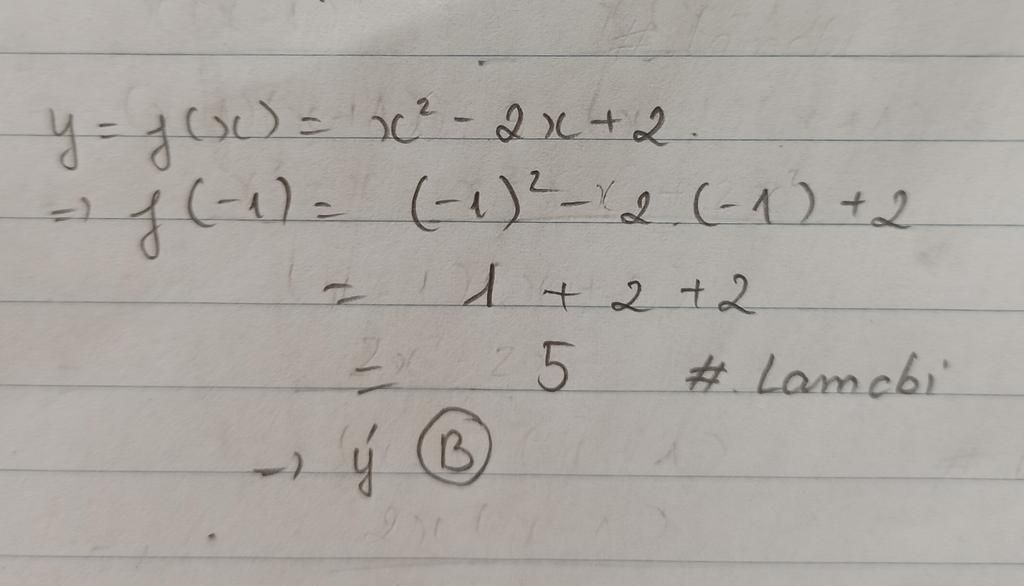 y = f(x) = x² - 2x + 2.
=> f(-1) = (-1)² - 2.(-1) + 2
= 1 + 2 + 2
= 5 # Lamcbi
→ ý B